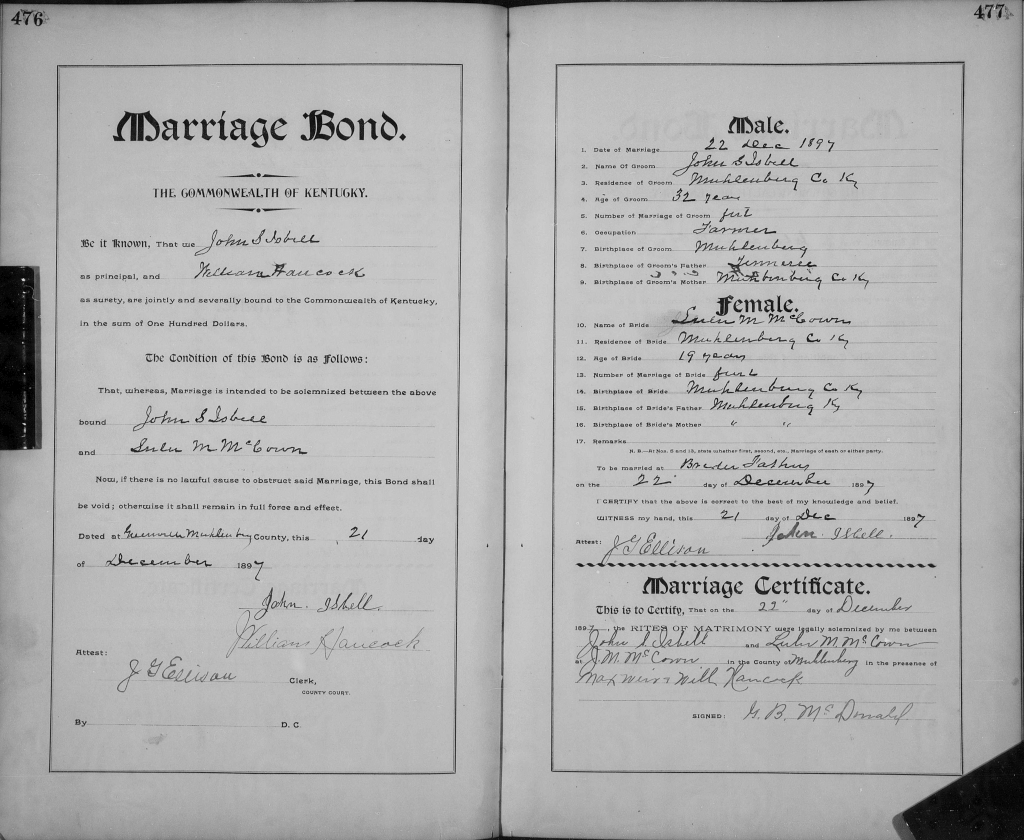 476
Marriage Bond.
THE COMMONWEALTH OF KENTUCKY.
Be it Known, That we John S Isbell
as principal, and William Hancock
as surety, are jointly and severally bound to the Commonwealth of Kentucky,
in the sum of One Hundred Dollars.
The Condition of this Bond is as Follows:
That, whereas, Marriage is intended to be solemnized between the above
bound John S Isbell
and Lulu M McCown
Now, if there is no lawful cause to obstruct said Marriage, this Bond shall
be void; otherwise it shall remain in full force and effect.
Dated at Greenville Muhlenberg County, this 21 day
of December 1897
John. Isbell.
William Hancock
Attest:
J G Ellison Clerk,
COUNTY COURT.
By D. C.
477
Male.
1. Date of Marriage 22 Dec 1897
2. Name Of Groom John S Isbell
3. Residence of Groom Muhlenberg Co Ky
4. Age of Groom 32 years
5. Number of Marriage of Groom first
6. Occupation Farmer
7. Birthplace of Groom Muhlenberg
8. Birthplace of Groom's Father Tennessee
9. Birthplace of Groom's Mother Muhlenburg Co Ky
Female.
10. Name of Bride Lulu M McCown
11. Residence of Bride Muhlenburg Co Ky
12. Age of Bride 19 years
13. Number of Marriage of Bride first
14. Birthplace of Bride Muhlenburg Co Ky
15. Birthplace of Bride's Father Muhlenburg Ky
16. Birthplace of Bride's Mother " "
17. Remarks
N. B.—At Nos. 5 and 13, state whether first, second, etc., Marriage of each or either party.
To be married at Brides Fathers
on the 22 day of December 1897
I CERTIFY that the above is correct to the best of my knowledge and belief.
WITNESS my hand, this 21 day of Dec 1897
Attest: J G Ellison John. Isbell.
Marriage Certificate.
This is to Certify, That on the 22" day of December
1897, the RITES OF MATRIMONY were legally solemnized by me between
John S. Isbell and Lulu M. McCown
at J. M. McCown in the County of Muhlenberg in the presence of
Max Weir & Will Hancock
SIGNED: G. B. McDonald